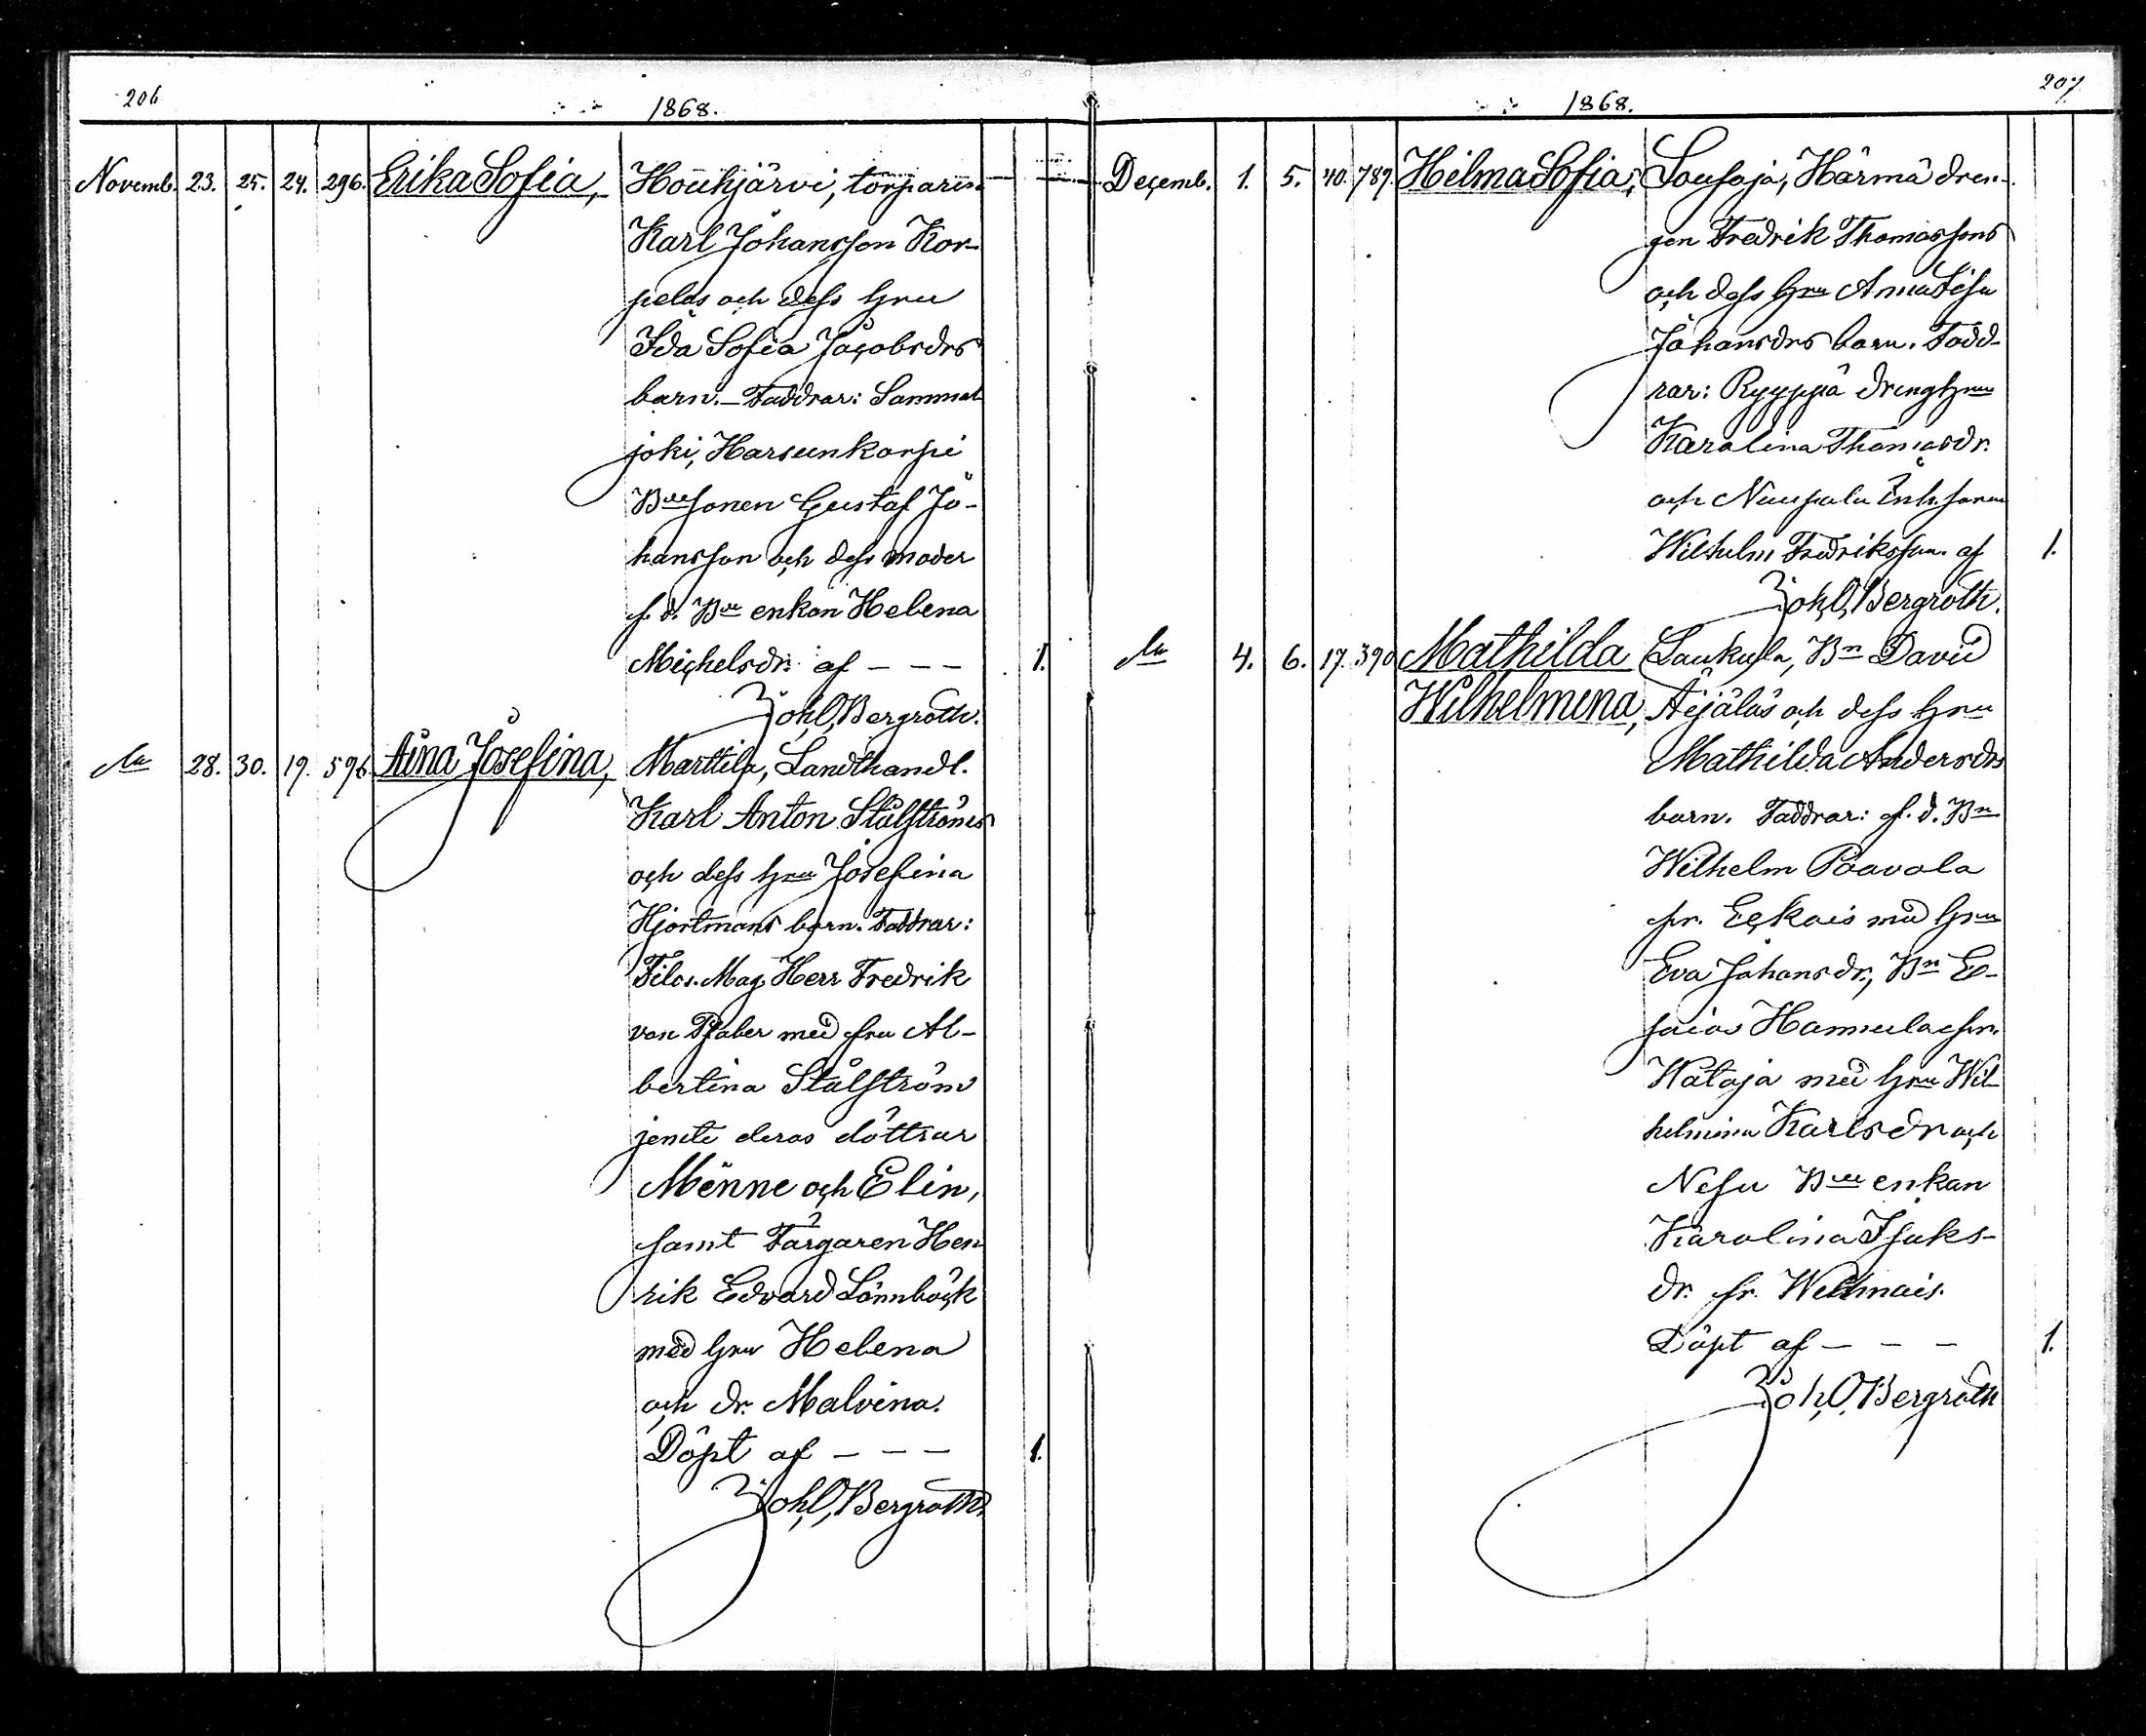 206
1868.
Novemb. 23. 25. 24. 296. Erika Sofia, Houhjärvi, torparen
Karl Johansson Kor-
pelas och dess hru
Ida Sofia Jacobsdrs
barn. – Faddrar: Sammal
joki, Harsunkorpi
Bdesonen Gustaf Jo-
hansson och dess moder
f. d. Bde enkan Helena
Michelsdr. af – – –
1.
Joh. O. Bergroth.
28. 30. 19. 596. Aina Josefina, Marttila, Landthandl.
Karl Anton Stålströms
och dess hru Josefina
Hjortmans barn. Faddrar:
Filos. Mag. Herr Fredrik
von Pfaler med fru Al-
bertina Stålström
jemte deras döttrar
Menne och Elin,
samt Färgaren Hen
rik Edvard Lönnbäck
med hru Helena
och dr. Malvina.
Döpt af – – –
1.
Joh. O. Bergroth.
207
1868.
Decemb. 1. 5. 40. 789. Hilma Sofia, Sousoja, Härmä dren-
gen Fredrik Thomassons
och dess hru Anna Lisa
Johansdrs barn. Fadd-
rar: Ryyppä drenghru
Karolina Thomasdr.
och Nuupala Inh. sonen
Wilhelm Fredriksson. af
1.
Joh. O. Bergroth.
4. 6. 17. 390 Mathilda Laukula, Bn David
Wilhelmina, Äijäläs och dess hru
Mathilda Andersdrs
barn. Faddrar: f. d. Bn
Wilhelm Paavola
fr. Eckois med hru
Eva Johansdr., Bn Es-
saias Hannula fr.
Kataja med hru Wil
helmina Karlsdr och
Nesu Bde enkan
Karolina Isaks-
dr. fr. Wellmais.
Döpt af – – –
1.
Joh. O. Bergroth